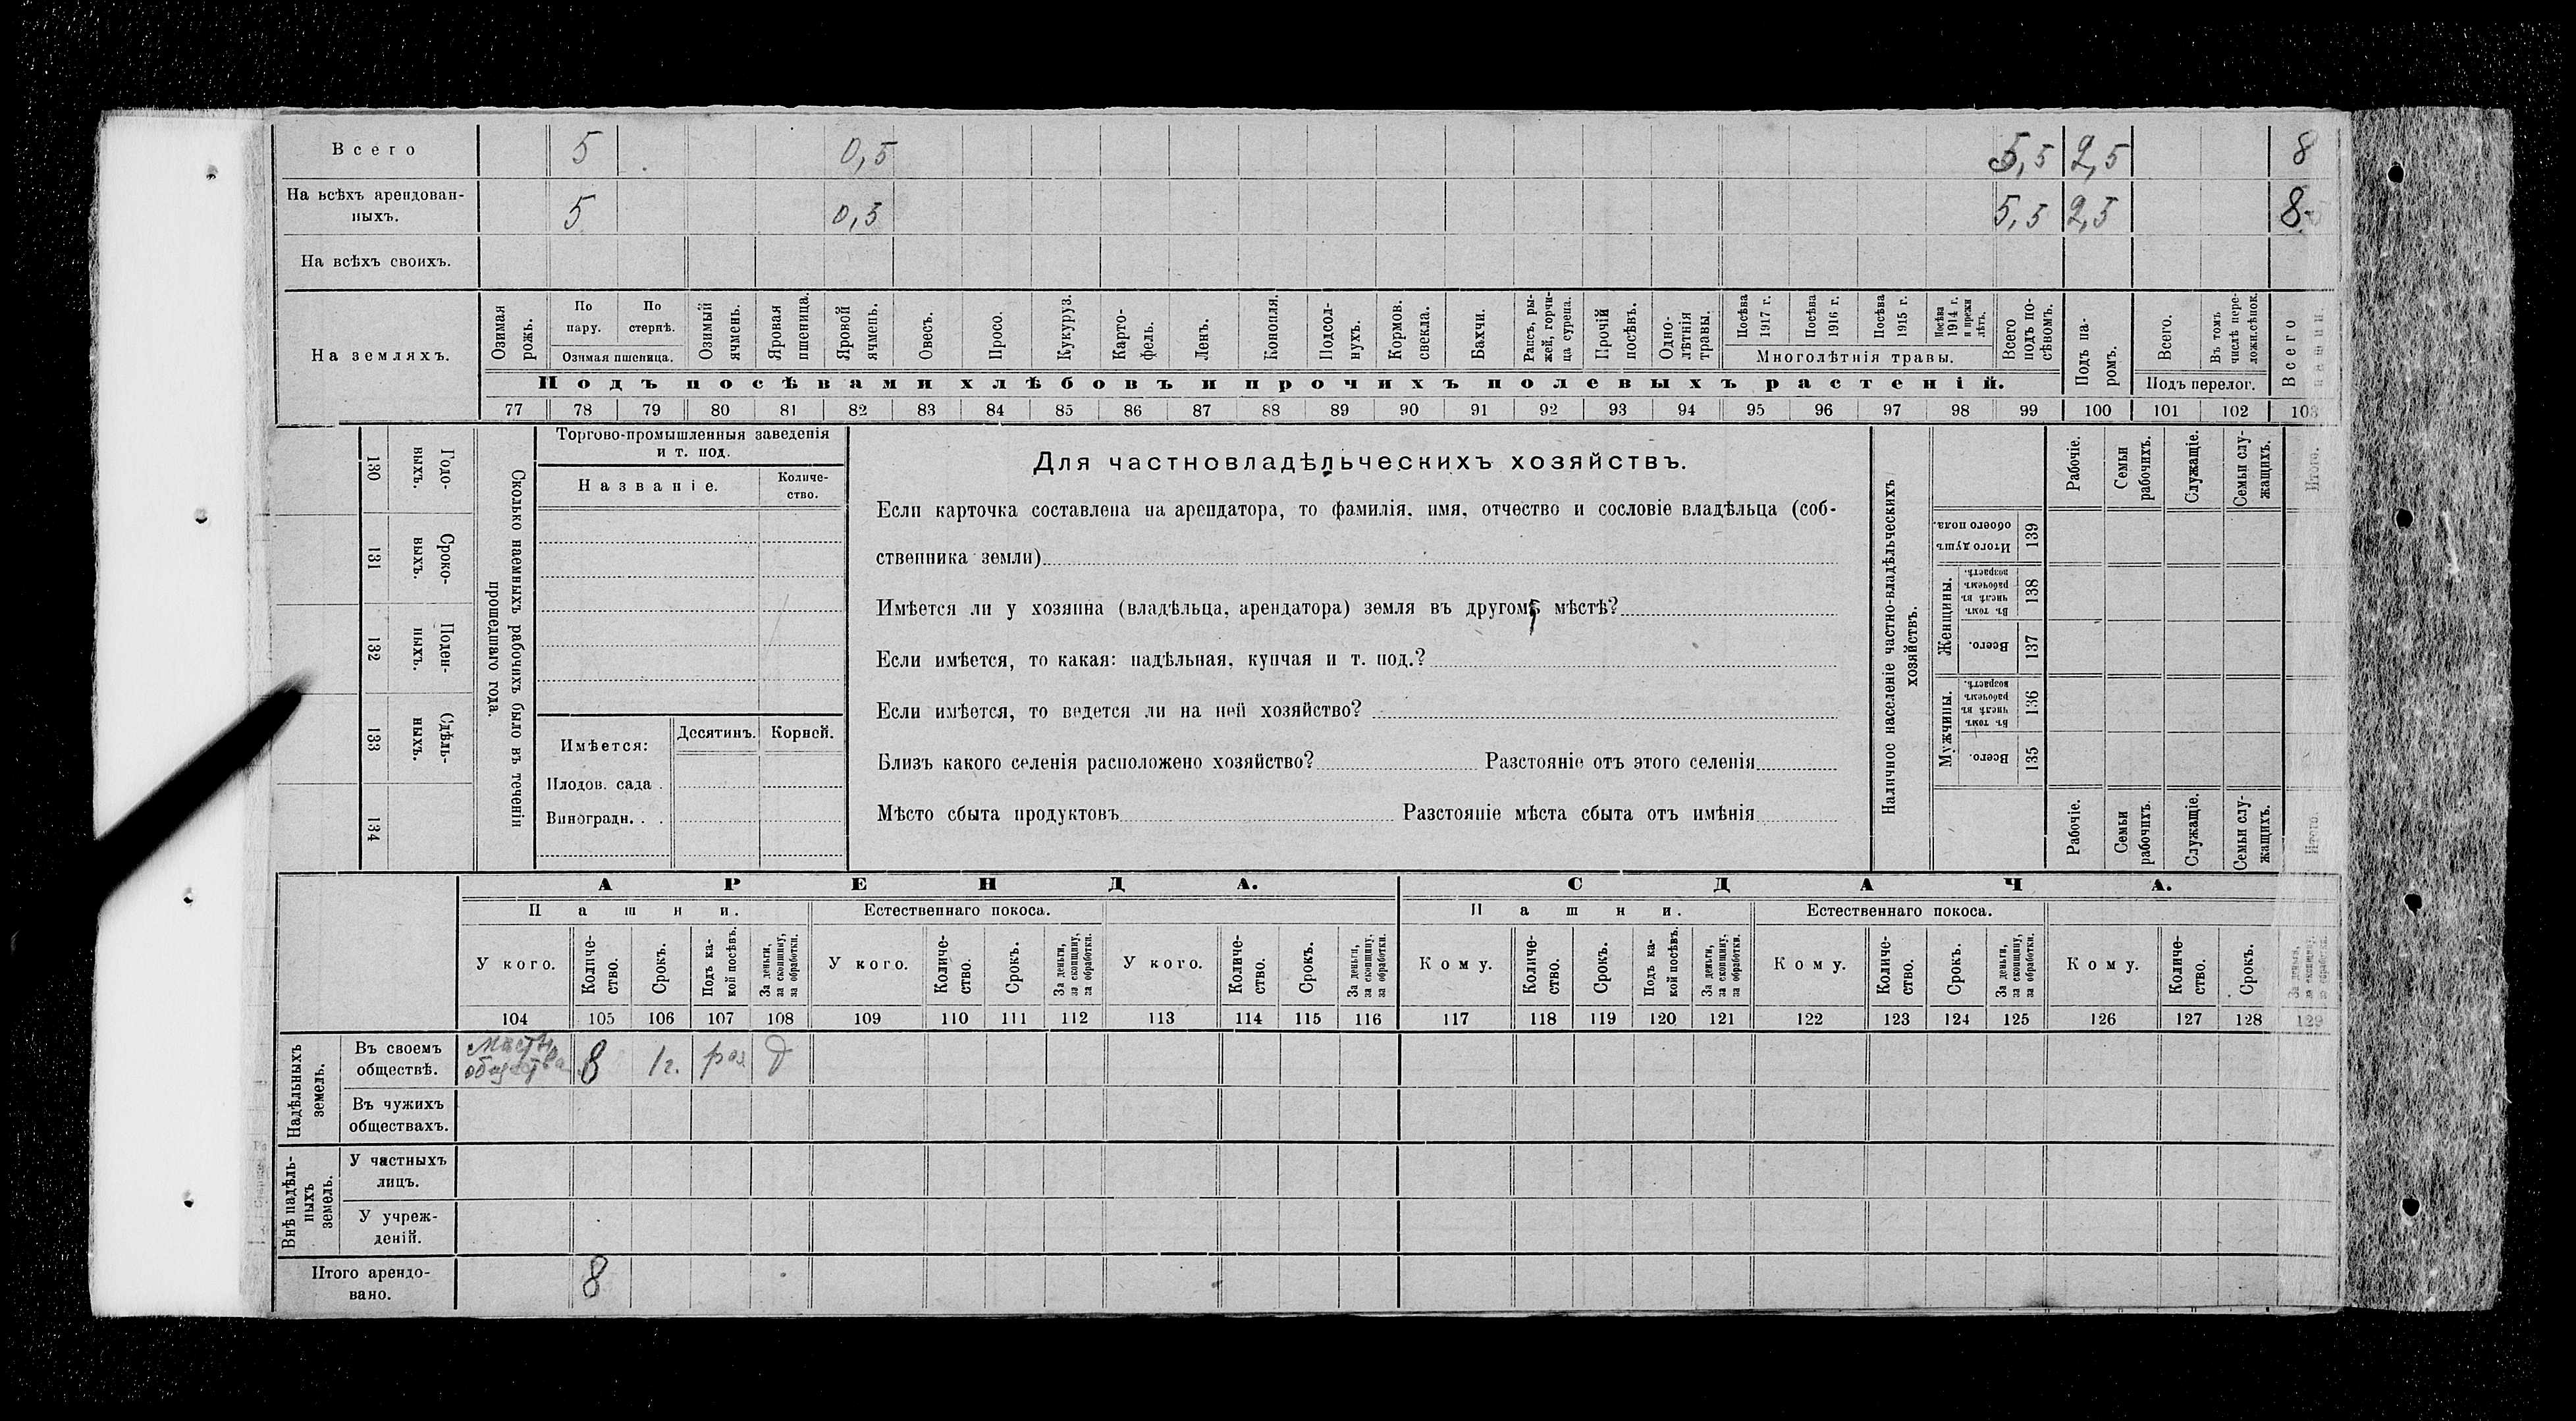 Всего 5 0,5 5,5 2,5 8
На всѣхъ арендован-
ныхъ. 5 0,5 5,5 2,5 8
На всѣхъ своихъ.
На земляхъ.
Озимая рожь.
По пару.
По стернѣ.
Озимая пшеница.
Озимый ячмень.
Яровая пшеница.
Яровой ячмень.
Овесъ.
Просо.
Кукуруз.
Карто-
фель.
Ленъ.
Конопля.
Подсол-
нухъ.
Кормов.
свекла.
Бахчи.
Рапсъ, ры-
жей, горчи-
ца сурепа.
Прочій
посѣвъ.
Одно-
лѣтнія
травы.
Посѣва
1917 г.
Посѣва
1916 г.
Посѣва
1915 г.
Посѣва
1914 г.
и прежн
лѣтъ.
Многолѣтнія травы.
Всего
подъ по-
сѣвомъ.
Подъ па-
ромъ.
Всего.
Въ томъ
числѣ пере-
ложн.сѣнок.
Подъ перелог.
Всего
пашни.
Подъ посѣвами хлѣбовъ и прочихъ полевыхъ растеній.
77 78 79 80 81 82 83 84 85 86 87 88 89 90 91 92 93 94 95 96 97 98 99 100 101 102 103
130 Годо-
выхъ.
131 Сроко-
выхъ.
132 Поден-
ныхъ.
133 Сдѣль-
ныхъ.
134
Сколько наемныхъ рабочихъ было въ теченіи
прошедшаго года.
Торгово-промышленныя заведенія
и т. под.
Названіе.
Количе-
ство.
Имѣется:
Десятинъ.
Корней.
Плодов. сада .
Виноградн. . .
Для частновладѣльческихъ хозяйствъ.
Если карточка составлена на арендатора, то фамилія, имя, отчество и сословіе владѣльца (соб-
ственника земли)
Имѣется ли у хозяина (владѣльца, арендатора) земля въ другомъ мѣстѣ?
Если имѣется, то какая: надѣльная, купчая и т. под.?
Если имѣется, то ведется ли на ней хозяйство?
Близъ какого селенія расположено хозяйство? Разстояніе отъ этого селенія
Мѣсто сбыта продуктовъ Разстояніе мѣста сбыта отъ имѣнія
Наличное населеніе частно-владѣльческихъ
хозяйствъ.
Рабочіе.
Семьи
рабочихъ.
Служащіе.
Семьи слу-
жащихъ.
Итого.
Итого душъ
обоего пола.
139
Женщины.
Въ томъ
числѣ въ
рабочемъ
возрастѣ.
138
Всего.
137
Мужчины.
Въ томъ
числѣ въ
рабочемъ
возрастѣ.
136
Всего.
135
Рабочіе.
Семьи
рабочихъ.
Служащіе.
Семьи слу-
жащихъ.
Итого.
АРЕНДА. СДАЧА.
Пашни. Естественнаго покоса. Пашни. Естественнаго покоса.
У кого.
Количе-
ство.
Срокъ.
Подъ ка-
кой посѣвъ.
За деньги,
за скопщину,
за обработки.
У кого.
Количе-
ство.
Срокъ.
За деньги,
за скопщину,
за обработки.
У кого.
Количе-
ство.
Срокъ.
За деньги,
за скопщину,
за обработки.
Кому.
Количе-
ство.
Срокъ.
Подъ ка-
кой посѣвъ.
За деньги,
за скопщину,
за обработки.
Кому.
Количе-
ство.
Срокъ.
За деньги,
за скопщину,
за обработки.
Кому.
Количе-
ство.
Срокъ.
За деньги,
за скопщину,
за обработки.
104 105 106 107 108 109 110 111 112 113 114 115 116 117 118 119 120 121 122 123 124 125 126 127 128 129
Надѣльныхъ
земель.
Въ своемъ
обществѣ.
общества 8 1г. роз д
Въ чужихъ
обществахъ.
Внѣ надѣль-
ныхъ
земель.
У частныхъ
лицъ.
У учреж-
деній.
Итого арендо-
вано. 8